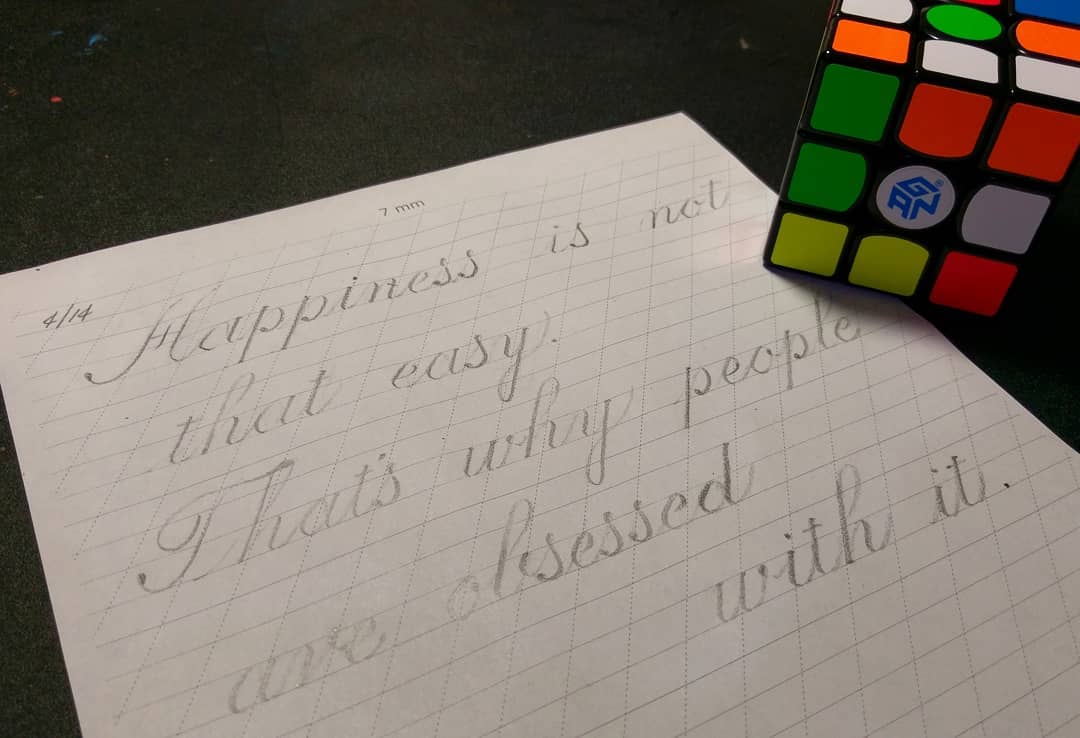 7 mm
4/14
Happiness is not
that easy.
That's why people
are obsessed
with it.
GAN